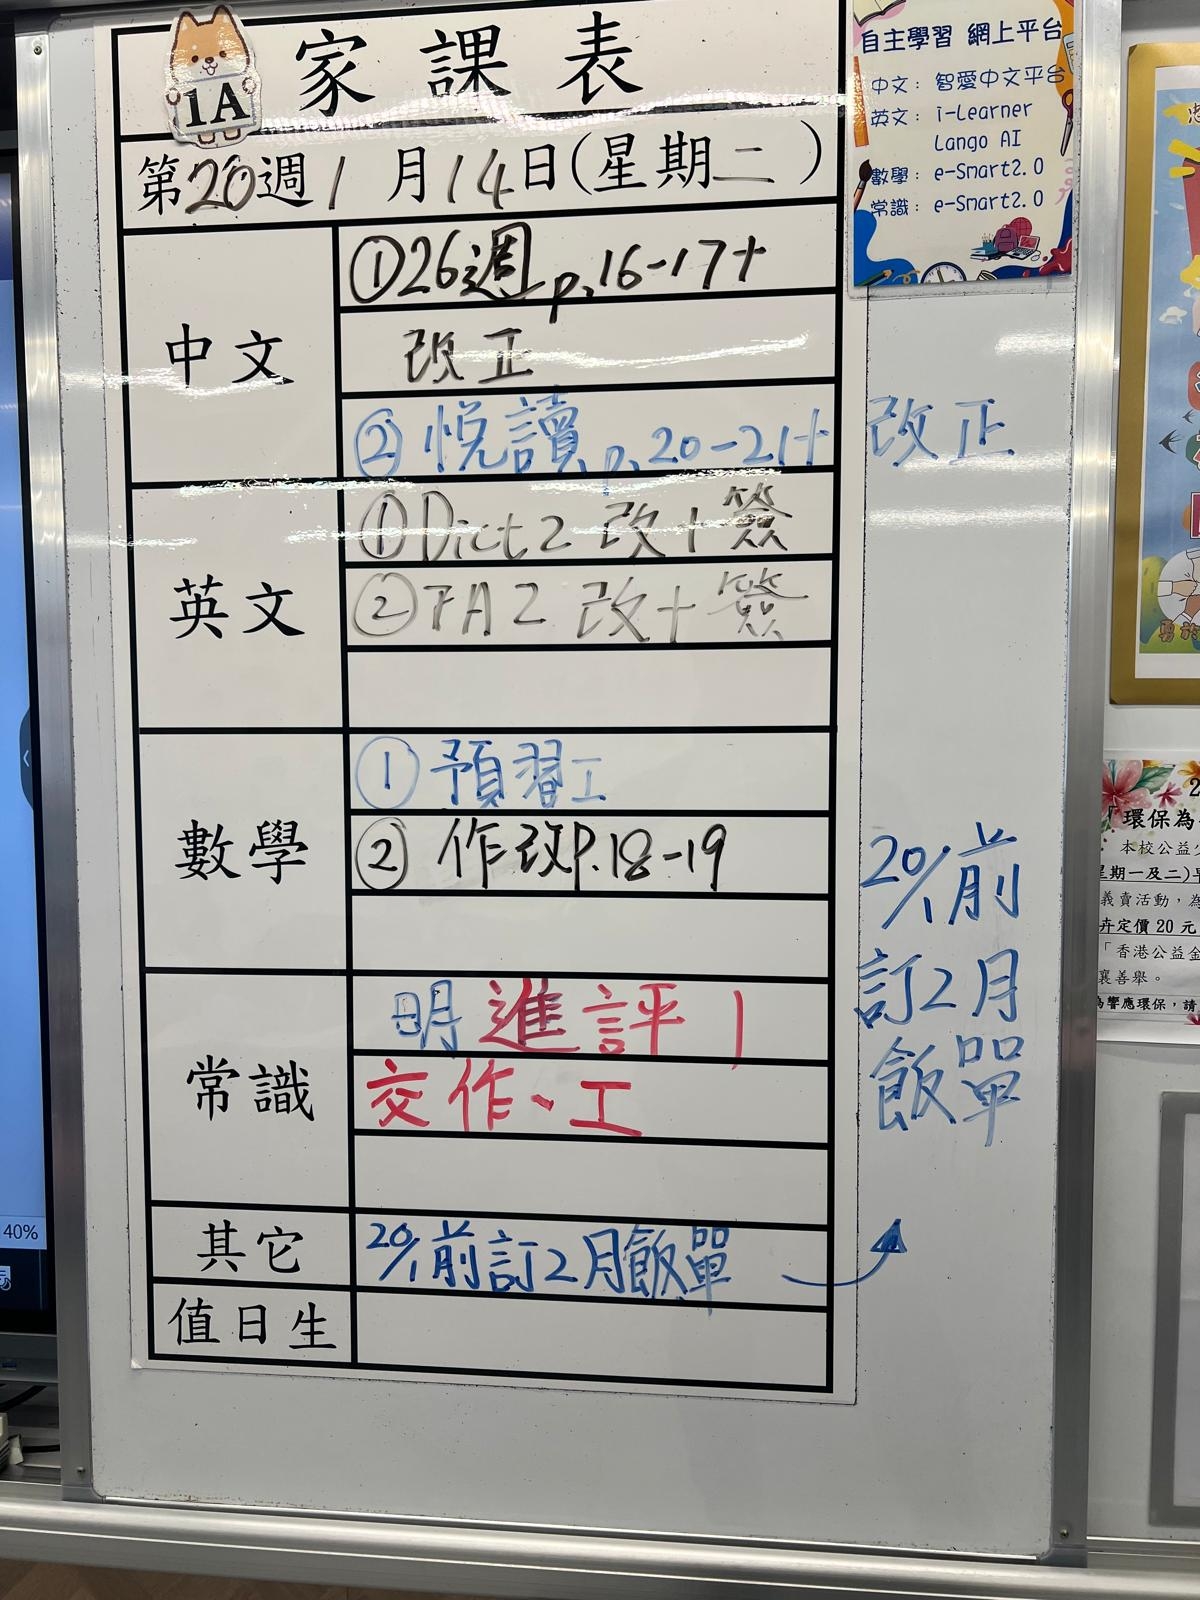 1A
家課表
第20週1月14日(星期二)
中文
①26週p.16-17+
改正
②悅讀p.20-21+改正
英文
①Dict2 改+簽
②FA2 改+簽
數學
①預習工
②作改P.18-19
常識
明進評1
交作、工
其它
20/1前訂2月飯單
值日生
20/1前
訂2月
飯單
自主學習 網上平台
中文：智愛中文平台
英文：i-Learner
Lango AI
數學：e-Smart2.0
常識：e-Smart2.0
「環保為
本校公益少
星期一及二)早
義賣活動，為
卉定價20元
「香港公益金
襄善舉。
為響應環保，請
40%